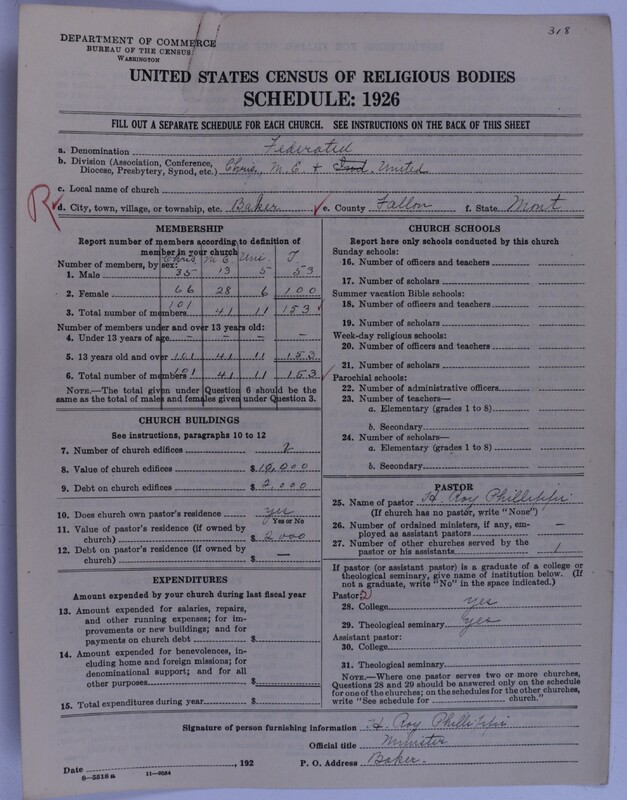 318
DEPARTMENT OF COMMERCE
BUREAU OF THE CENSUS
WASHINGTON
UNITED STATES CENSUS OF RELIGIOUS BODIES
SCHEDULE: 1926
FILL OUT A SEPARATE SCHEDULE FOR EACH CHURCH. SEE INSTRUCTIONS ON THE BACK OF THIS SHEET
a. Denomination Federated
b. Division (Association, Conference, Diocese, Presbytery, Synod, etc.) Chris, M.E + United
c. Local name of church
R
d. City, town, village, or township, etc. Baker e. County Fallon f. State Mont
MEMBERSHIP
Report number of members according to definition of
member in your church
Chris M E Uni. T
Number of members, by sex:
1. Male 35 13 5 53
2. Female 66 28 6 100
3. Total number of members 101 41 11 153
Number of members under and over 13 years old:
4. Under 13 years of age - - - -
5. 13 years old and over 101 41 11 153
6. Total number of members 101 41 11 153
NOTE.—The total given under Question 6 should be
same as the total of males and females given under Question 3.
CHURCH BUILDINGS
See instructions, paragraphs 10 to 12
7. Number of church edifices 2
8. Value of church edifices $
9. Debt on church edifices $ 2,000
10. Does church own pastor's residence? yes
Yes or No
11. Value of pastor's residence (if owned by
church) $ 2000
12. Debt on pastor's residence (if owned by
church) $ —
EXPENDITURES
Amount expended by your church during last fiscal year
13. Amount expended for salaries, repairs,
and other running expenses; for im-
provements or new buildings; and for
payments on church debt $
14. Amount expended for benevolences, in-
cluding home and foreign missions; for
denominational support; and for all
other purposes $
15. Total expenditures during year $
CHURCH SCHOOLS
Report here only schools conducted by this church
Sunday schools:
16. Number of officers and teachers
17. Number of scholars
Summer vacation Bible schools:
18. Number of officers and teachers
19. Number of scholars
Week-day religious schools:
20. Number of officers and teachers
21. Number of scholars
Parochial schools:
22. Number of administrative officers
23. Number of teachers—
a. Elementary (grades 1 to 8)
b. Secondary
24. Number of scholars—
a. Elementary (grades 1 to 8)
b. Secondary
PASTOR
25. Name of pastor H. Roy Phillippi
(If church has no pastor, write "None")
26. Number of ordained ministers, if any, em-
ployed as assistant pastors —
27. Number of other churches served by the
pastor or his assistants 1
If pastor (or assistant pastor) is a graduate of a college or
theological seminary, give name of institution below. (If
not a graduate, write "No" in the space indicated.)
Pastor: 2
28. College yes
29. Theological seminary yes
Assistant pastor:
30. College
31. Theological seminary
NOTE.—Where one pastor serves two or more churches,
Questions 28 and 29 should be answered only on the schedule
for one of the churches; on the schedules for the other churches,
write "See schedule for church."
Signature of person furnishing information H. Roy Phillippi
Official title Minister
Date , 192 P. O. Address Baker.
8-5518a 11-9034